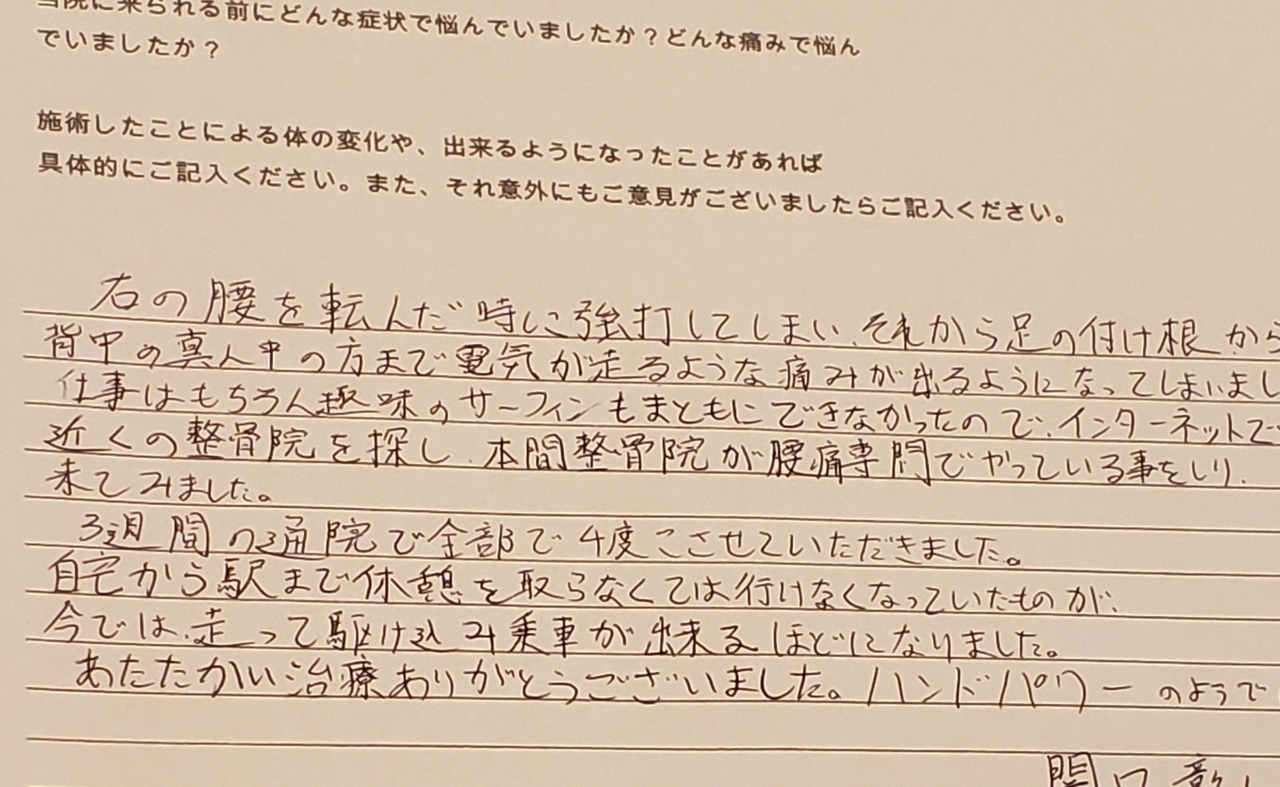 当院に来られる前にどんな症状で悩んでいましたか？どんな痛みで悩ん
でいましたか？
施術したことによる体の変化や、出来るようになったことがあれば
具体的にご記入ください。また、それ意外にもご意見がございましたらご記入ください。
右の腰を転んだ時に強打してしまい、それから足の付け根から
背中の真ん中の方まで電気が走るような痛みが出るようになってしまいまし
仕事はもちろん趣味のサーフィンもまともにできなかったので、インターネットで
近くの整骨院を探し、本間整骨院が腰痛専門でやっている事をしり、
来てみました。
3週間の通院で全部で4度こさせていただきました。
自宅から駅まで休憩を取らなくては行けなくなっていたものが、
今では、走って駆け込み乗車が出来るほどになりました。
あたたかい治療ありがとうございました。ハンドパワーのようで
関口